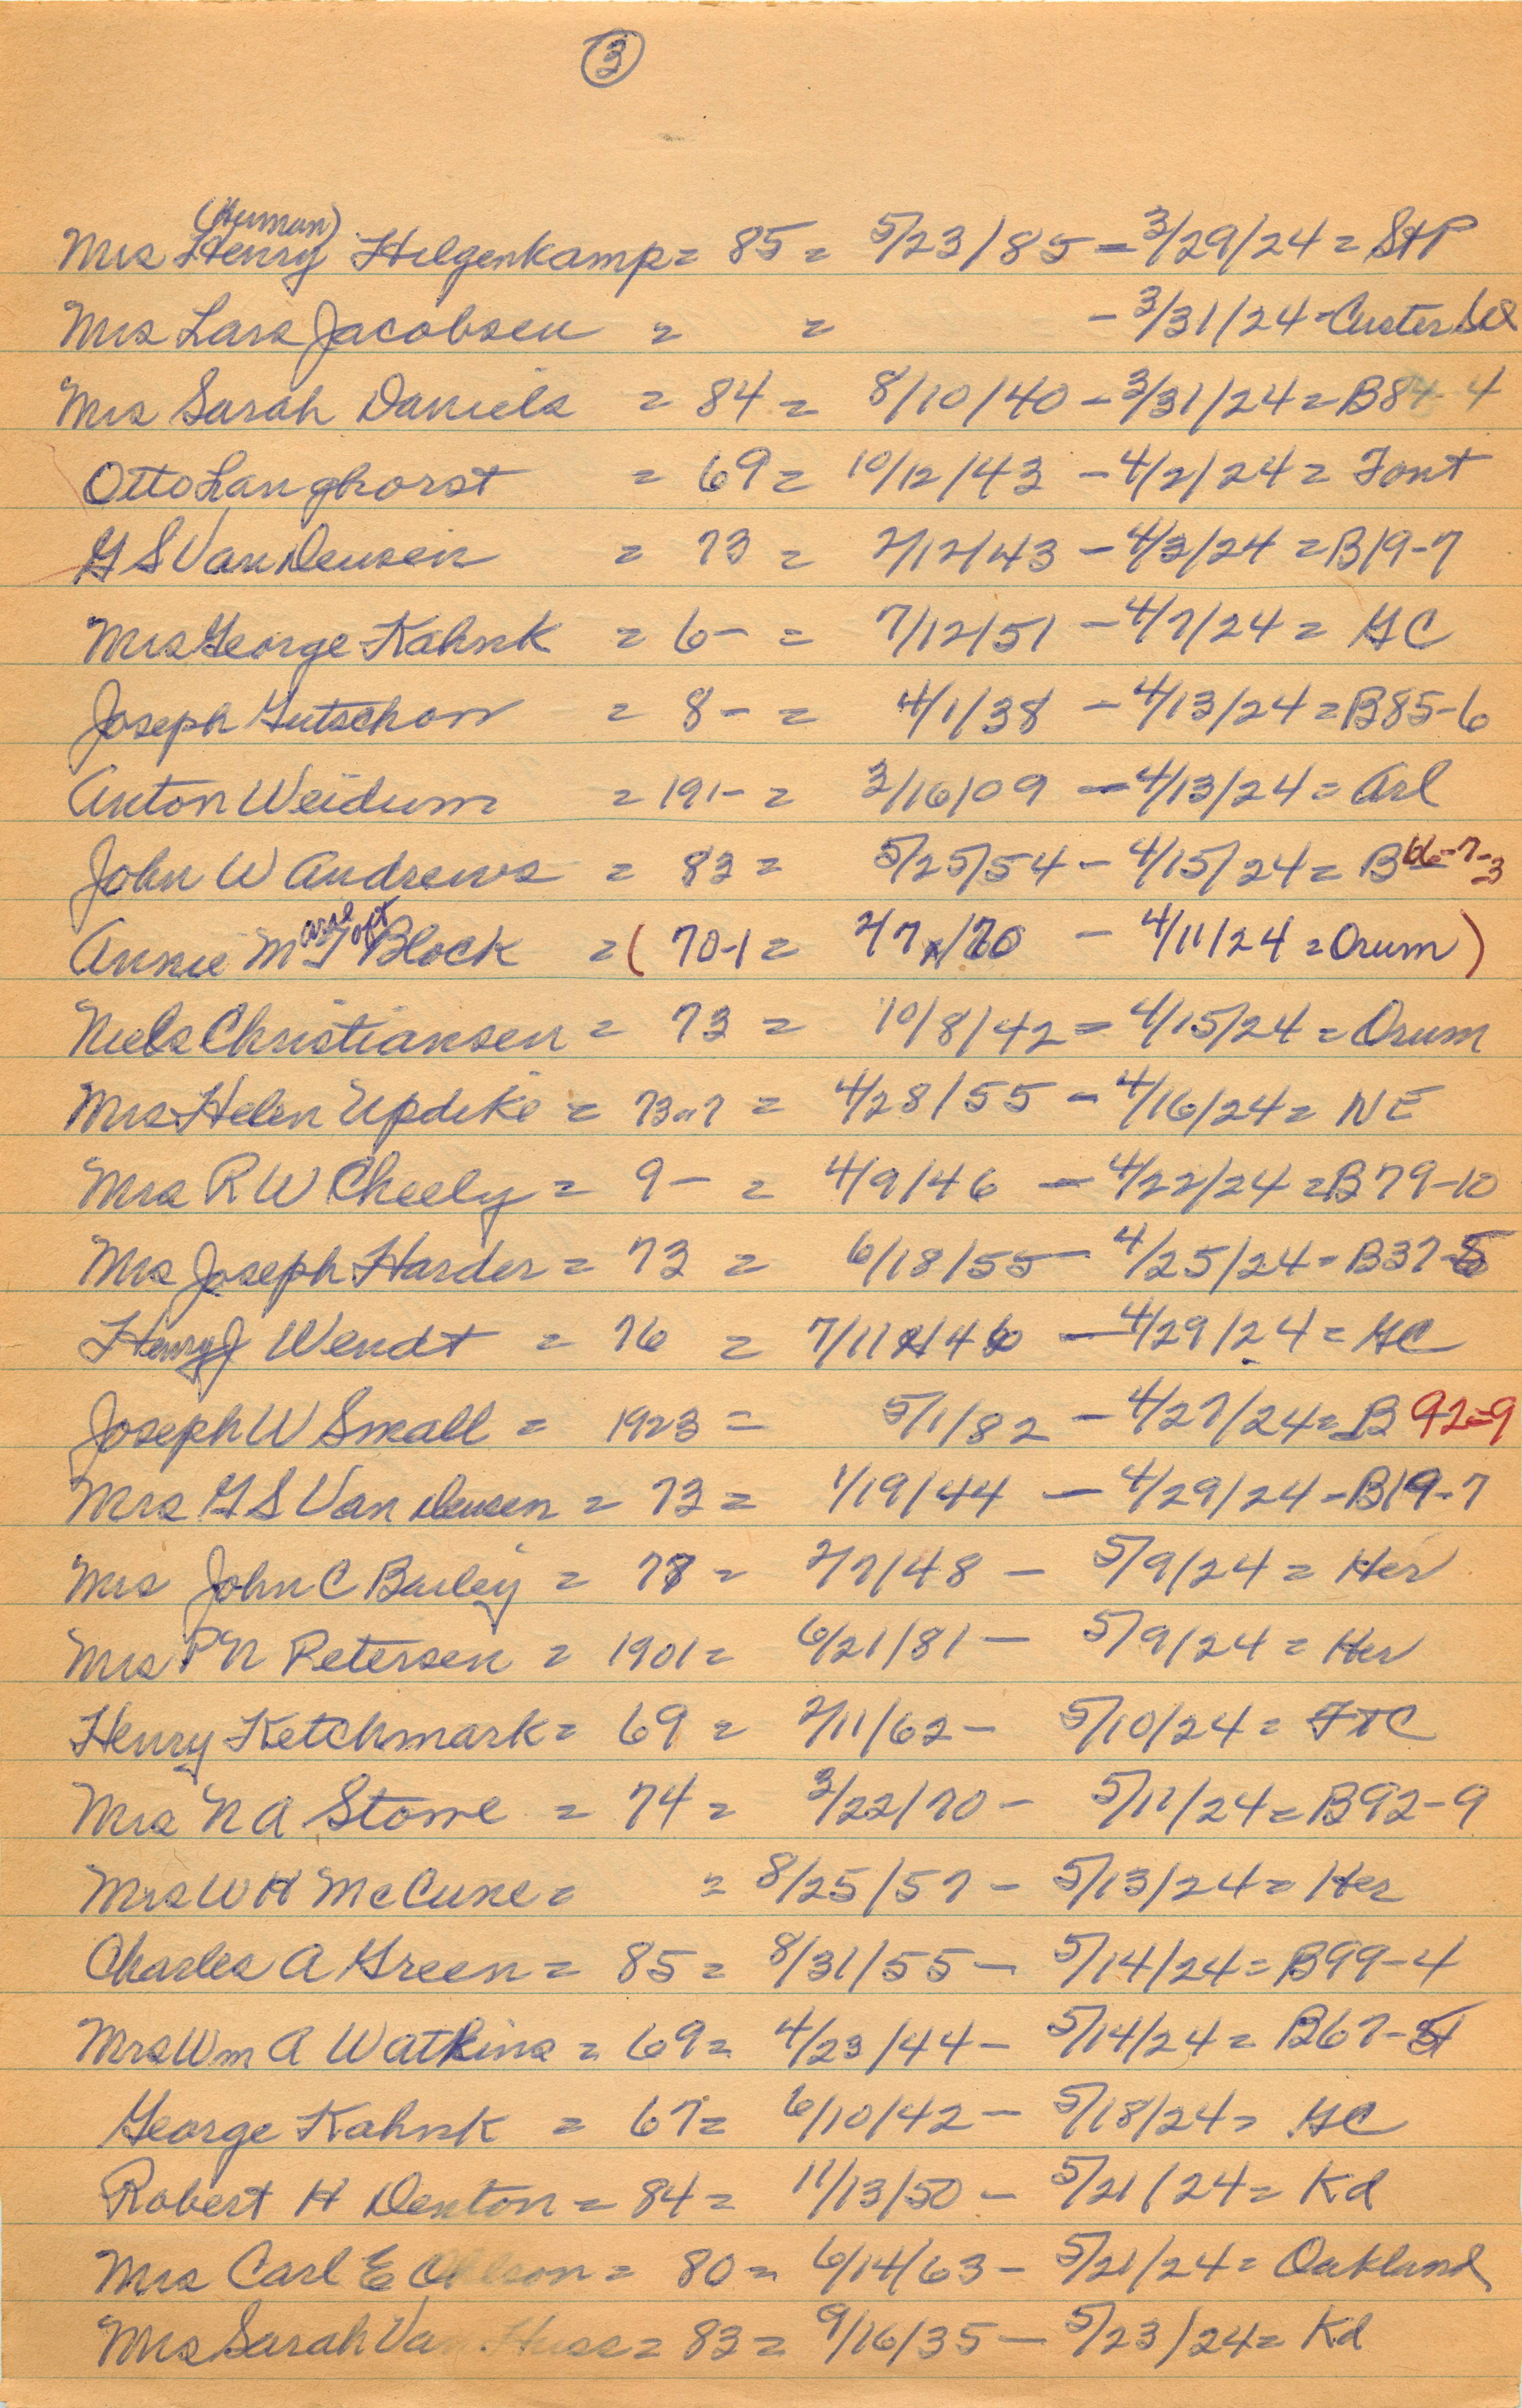 ③
(Herman)
Mrs Henry Hilgenkamp = 85 = 5/23/85 - 3/29/24 = StP
Mrs Lars Jacobsen = = - 3/31/24 - Custer
Mrs Sarah Daniels = 84 = 8/10/40 - 3/31/24 = B84-4
Otto Langhorst = 69 = 10/12/43 - 4/2/24 = Font
G S Van Deusen = 73 = 2/12/43 - 4/3/24 = B19-7
Mrs George Kahnk = 6- = 7/12/51 - 4/7/24 = GC
Joseph Gutschow = 8- = 4/1/38 - 4/13/24 = B85-6
Anton Weidum = 191- = 3/16/09 - 4/13/24 = Arl
John W Andrews = 83 = 5/25/54 - 4/15/24 = B66-7-3
Annie M Carl Toft Block = (70-1 = 2/7/70 - 4/11/24 = Orum)
Niels Christiansen = 73 = 10/8/42 = 4/15/24 = Orum
Mrs Helen Updike = 73-7 = 4/28/55 - 4/16/24 = NE
Mrs R W Cheely = 9- = 4/9/46 - 4/22/24 = B79-10
Mrs Joseph Harder = 73 = 6/18/55 - 4/25/24 - B37-5
Henry J Wendt = 76 = 7/11/46 - 4/29/24 = GC
Joseph W Small = 1923 = 5/1/82 - 4/27/24 = B 92=9
Mrs G S Van Deusen = 73 = 1/19/44 - 4/29/24 - B19-7
Mrs John C Bailey = 78 = 2/7/48 - 5/9/24 = Her
Mrs P N Petersen = 1901 = 6/21/81 - 5/9/24 = Her
Henry Ketchmark = 69 = 2/11/62 - 5/10/24 = FTC
Mrs N A Stowe = 74 = 3/22/70 - 5/11/24 = B92-9
Mrs W H McCune = = 8/25/57 - 5/13/24 = Her
Charles A Green = 85 = 8/31/55 - 5/14/24 = B99-4
Mrs Wm A Watkins = 69 = 4/23/44 - 5/14/24 = B67-
George Kahnk = 67 = 6/10/42 - 5/18/24 = GC
Robert H Denton = 84 = 11/13/50 - 5/21/24 = Kd
Mrs Carl E Ohlson = 80 = 6/14/63 - 5/21/24 = Oakland
Mrs Sarah Van Huss = 83 = 9/16/35 - 5/23/24 = Kd